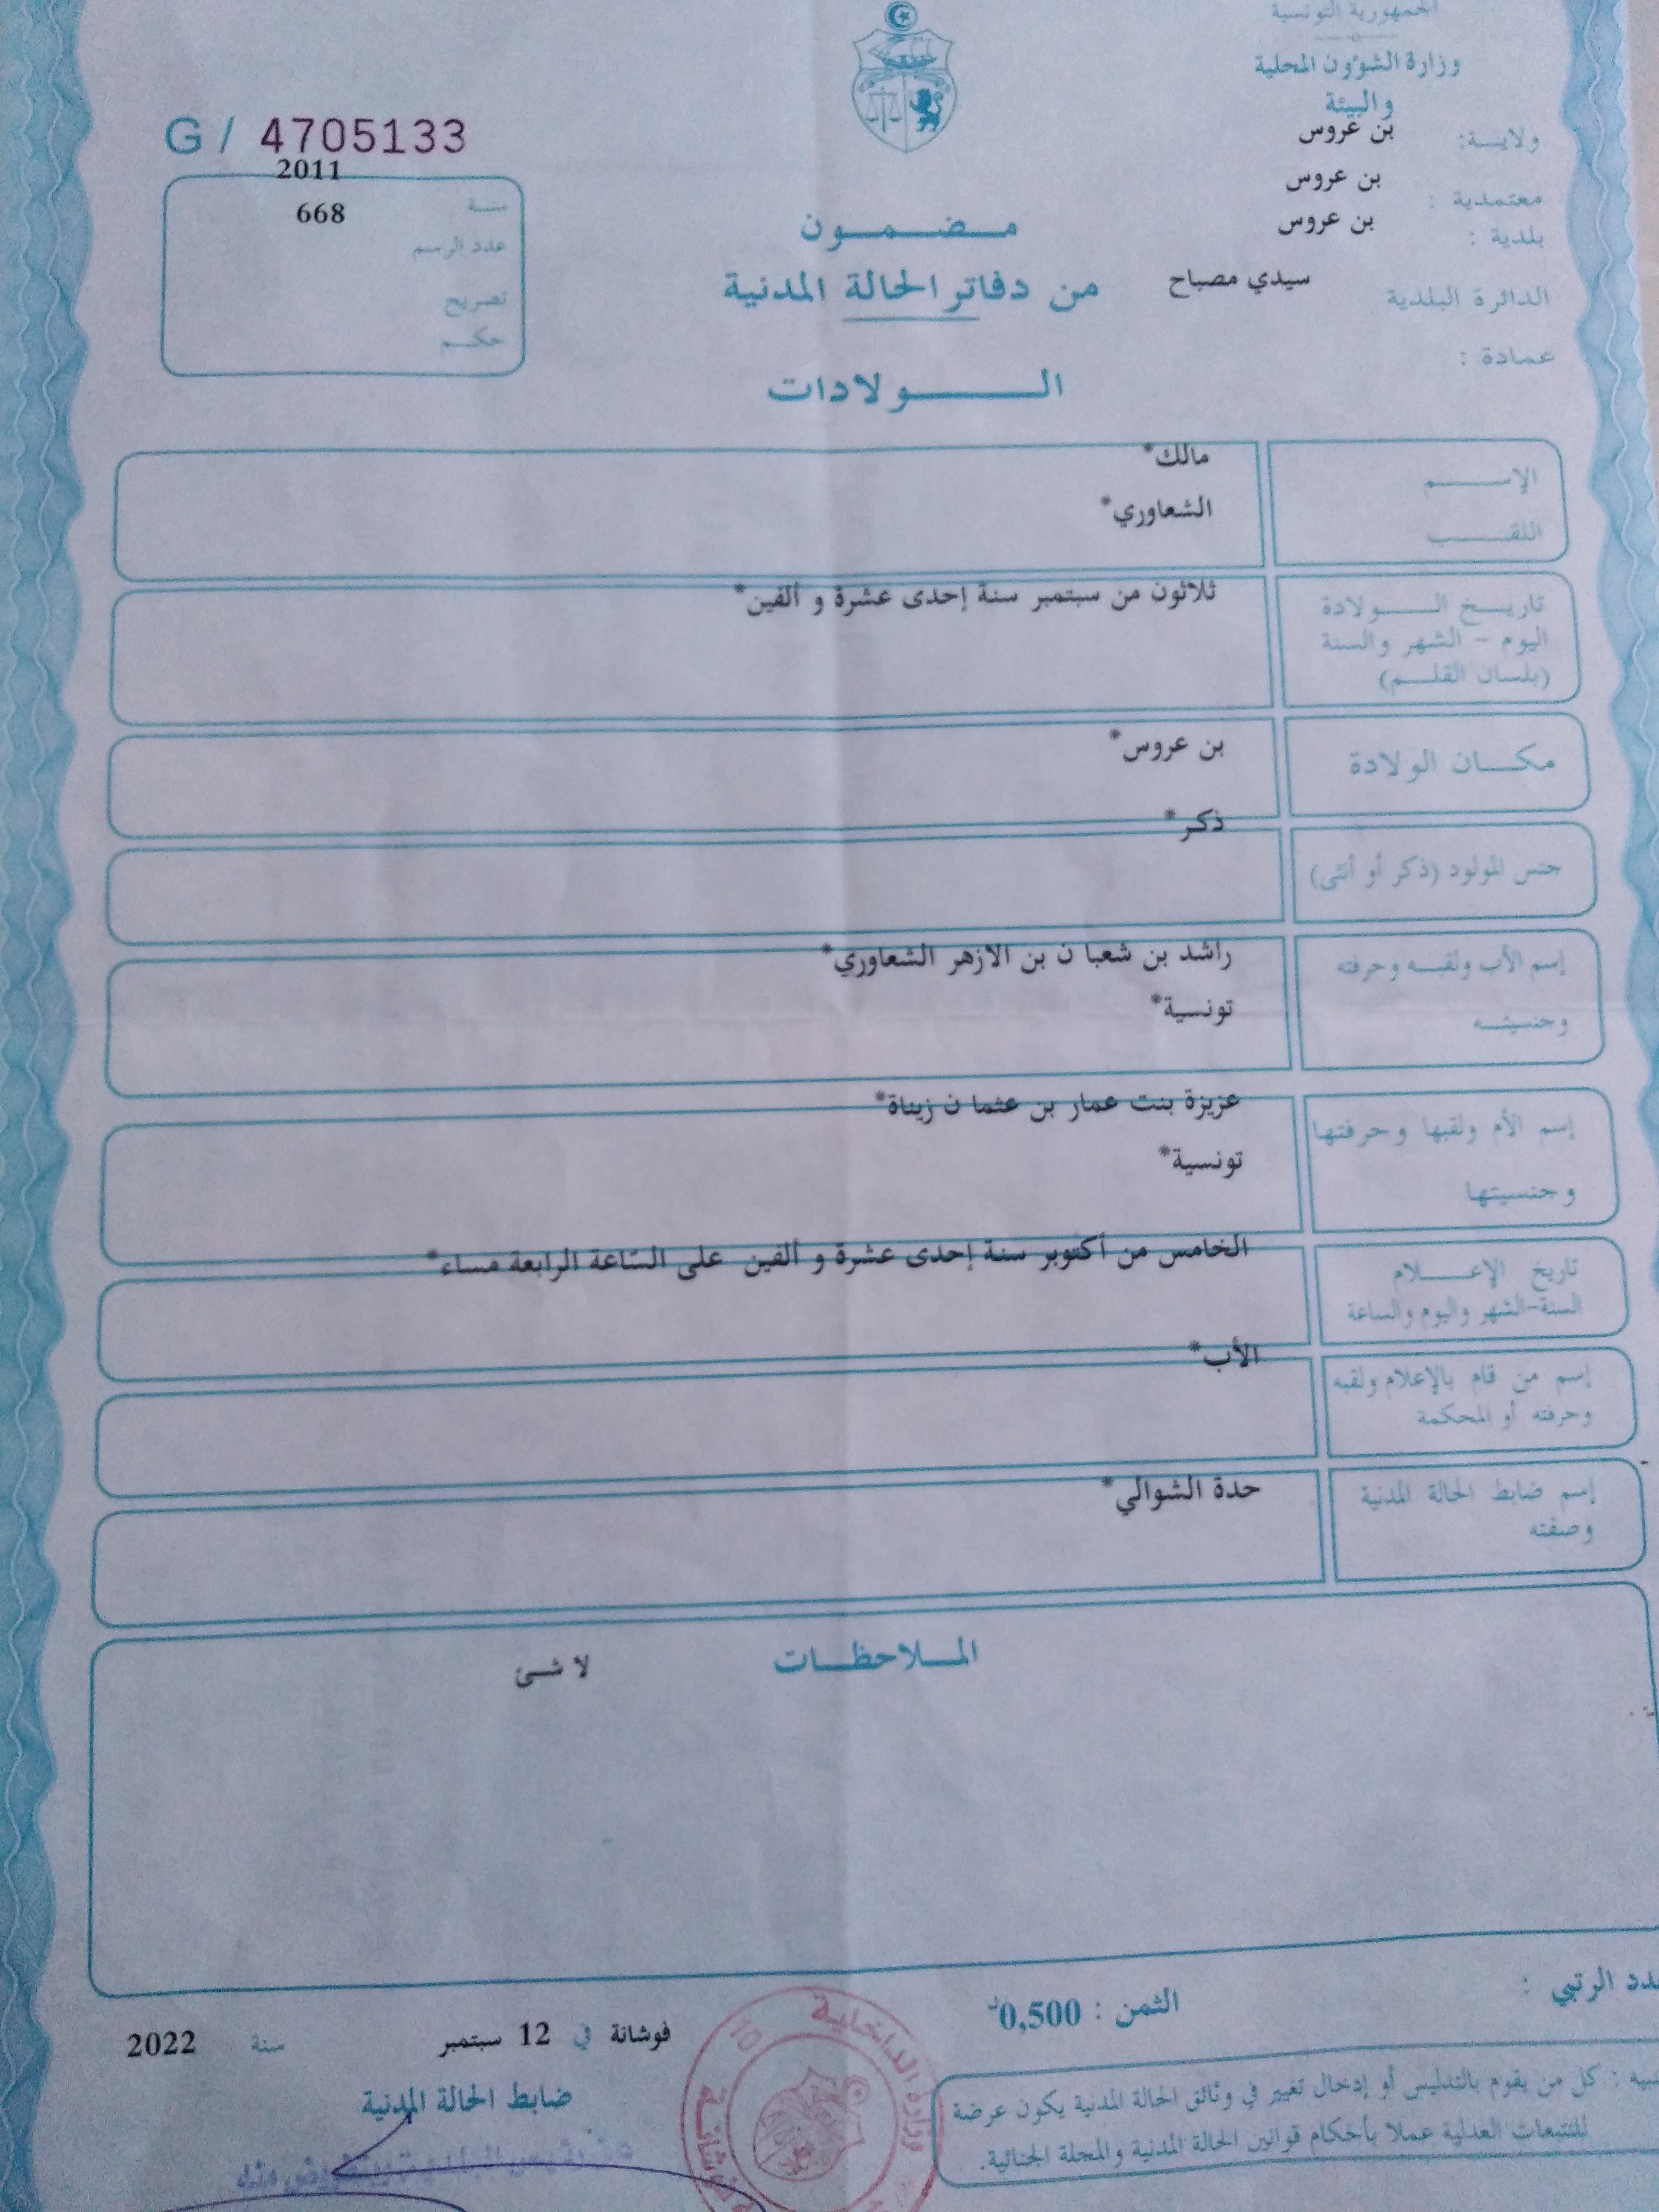 الجمهورية التونسية
وزارة الشؤون المحلية
والبيئة
ولايـة: بن عروس
معتمدية : بن عروس
بلدية : بن عروس
الدائرة البلدية سيدي مصباح
عمادة :
G / 4705133
2011
سنة
668
عدد الرسم
تصريح
حكم
مضمون
من دفاتر الحالة المدنية
الولادات
الإسم مالك*
اللقب الشعاوري*
تاريخ الولادة ثلاثون من سبتمبر سنة إحدى عشرة و ألفين*
اليوم - الشهر والسنة
(بلسان القلم)
مكان الولادة بن عروس*
ذكر*
جنس المولود (ذكر أو أنثى)
إسم الأب ولقبه وحرفته راشد بن شعبا ن بن الازهر الشعاوري*
وجنسيته تونسية*
إسم الأم ولقبها وحرفتها عزيزة بنت عمار بن عثما ن زيناة*
وجنسيتها تونسية*
تاريخ الإعلام الخامس من أكتوبر سنة إحدى عشرة و ألفين على الساعة الرابعة مساء*
السنة-الشهر واليوم والساعة
إسم من قام بالإعلام ولقبه الأب*
وحرفته أو المحكمة
إسم ضابط الحالة المدنية حدة الشوالي*
وصفته
الملاحظات
لا شئ
دد الرتبي :
الثمن : 0,500د
فوشانة في 12 سبتمبر سنة 2022
ضابط الحالة المدنية
نبيه : كل من يقوم بالتدليس أو إدخال تغيير في وثائق الحالة المدنية يكون عرضة
للتتبعات العدلية عملا بأحكام قوانين الحالة المدنية والمجلة الجنائية.
وزارة الداخلية
10